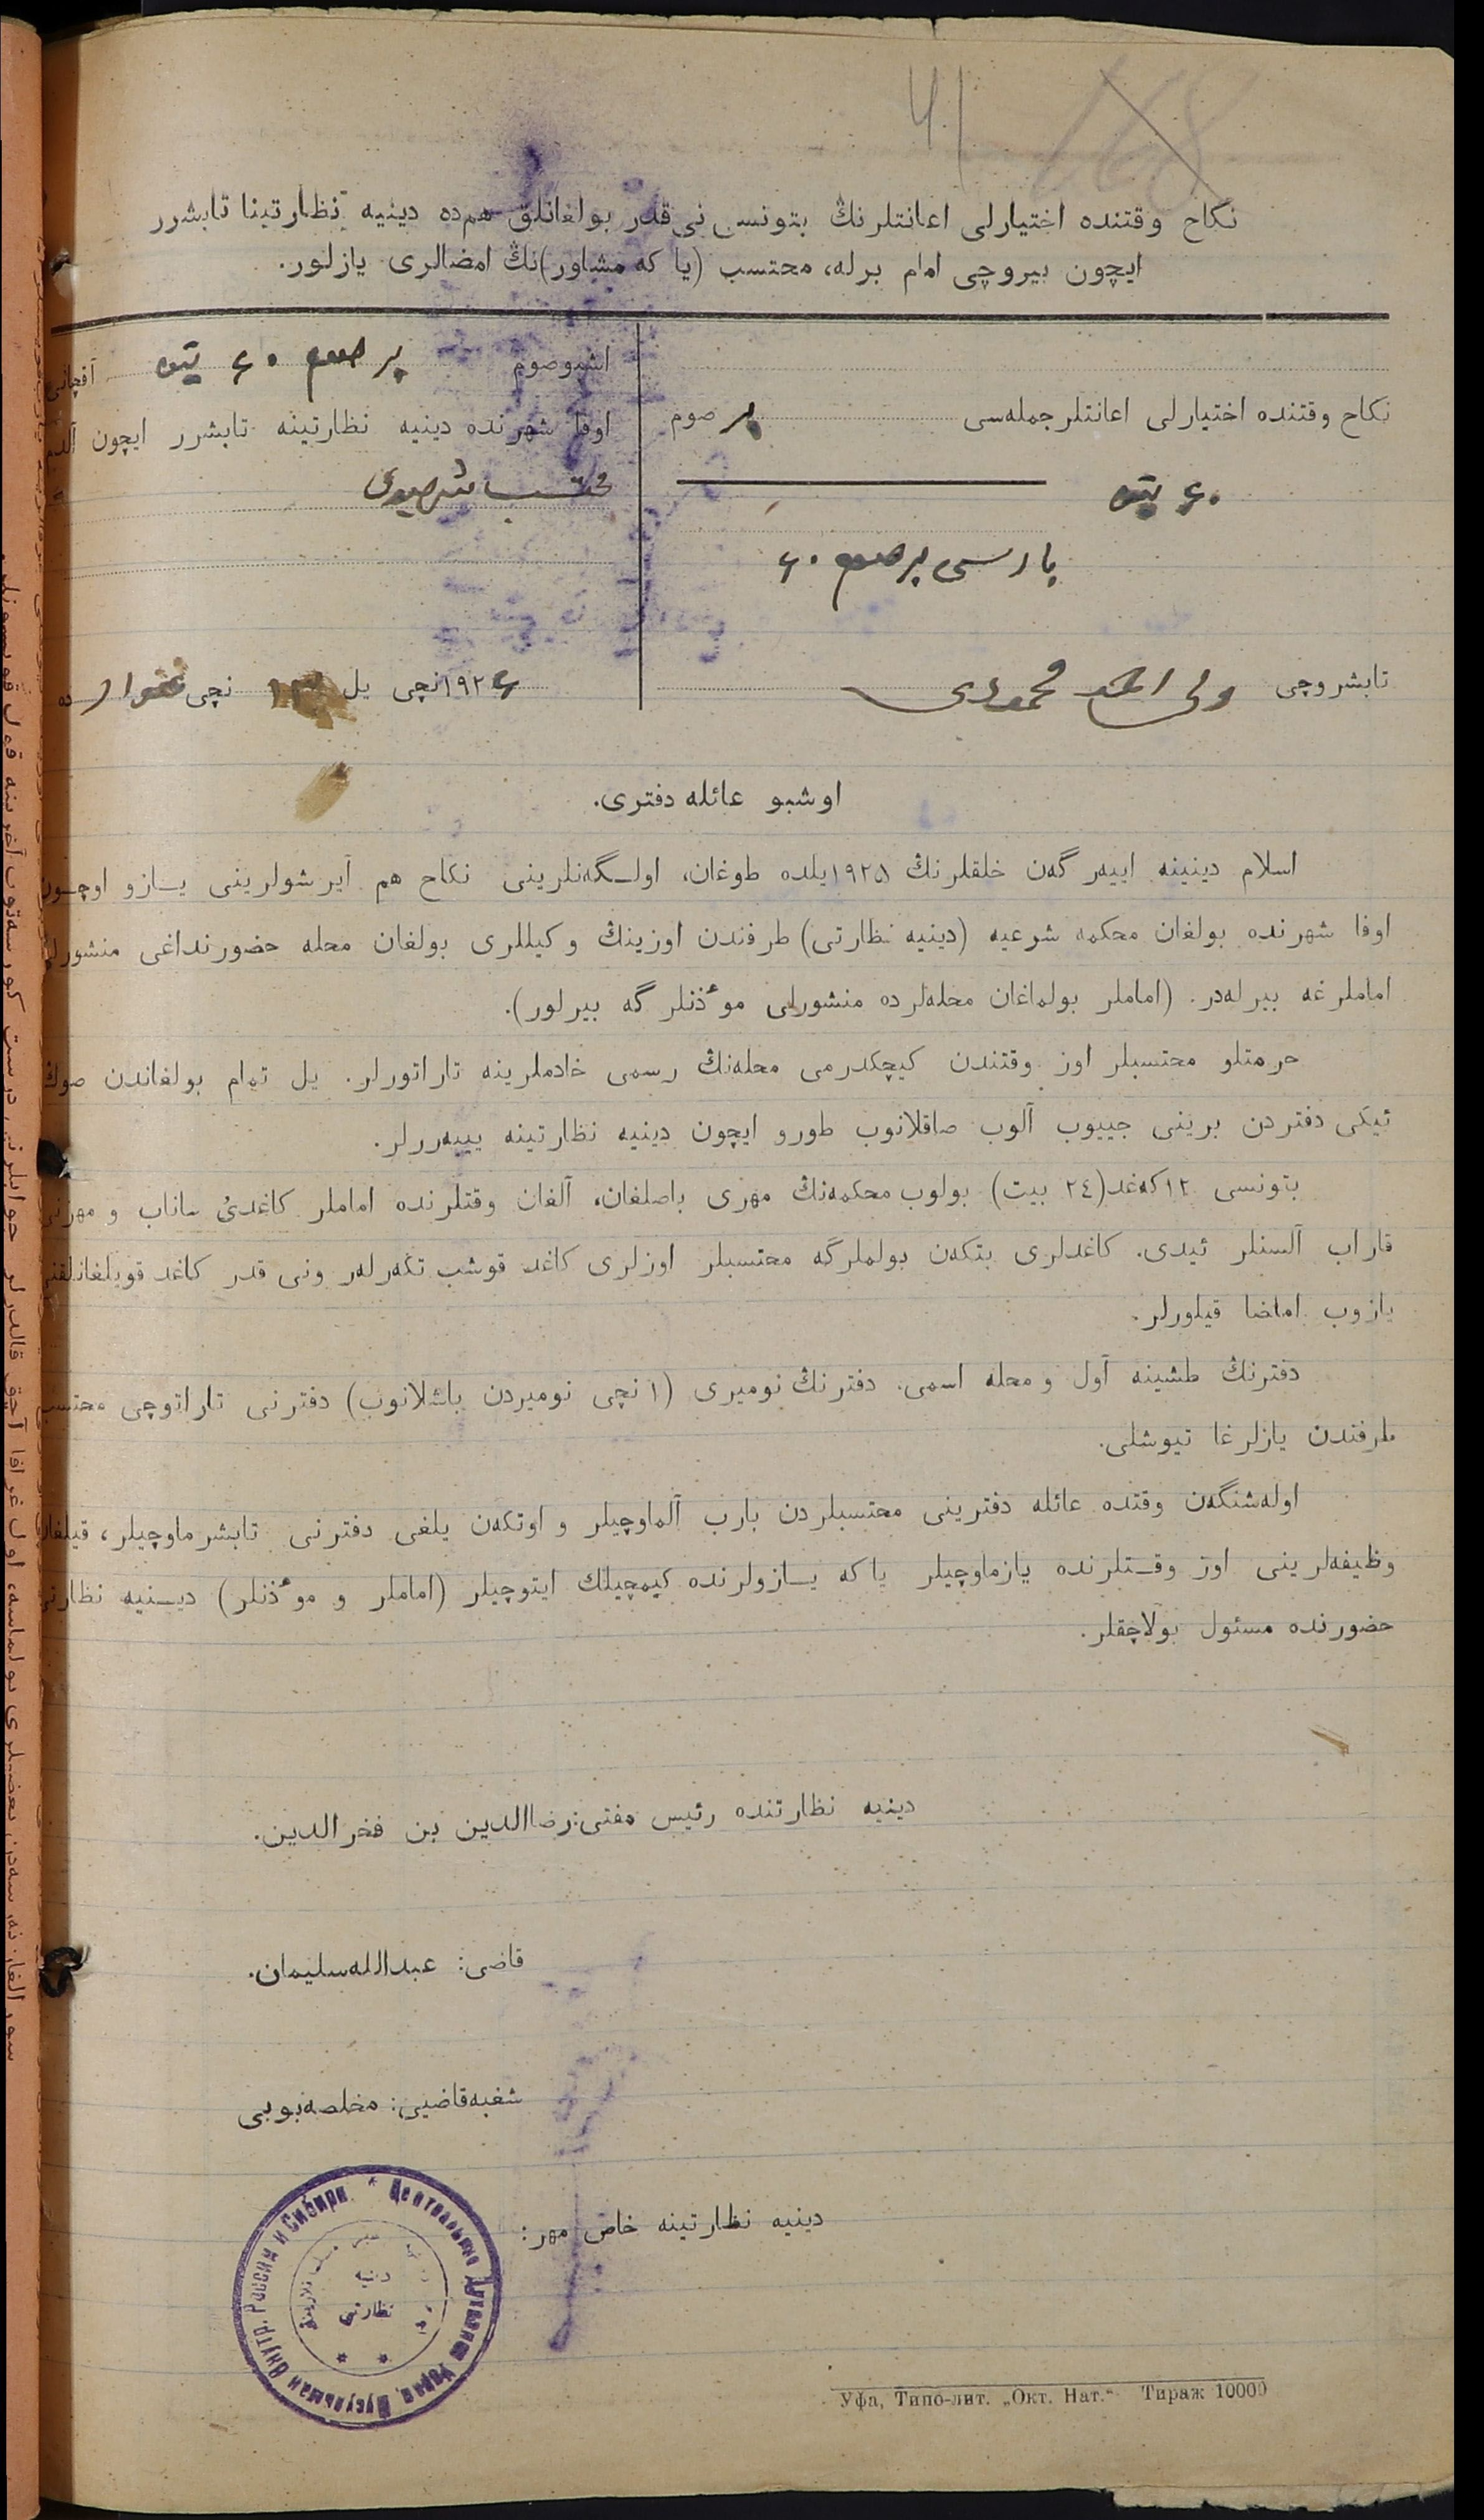 41
168
نكاح وقتنده اختيارلى اعانتلرنڭ بتونسى نى قدر بولغانلق هم‌ده دينيه نظارتينا تابشرر
ايچون بيروچى امام برله، محتسب (يا كه مشاور)نڭ امضالرى يازلور.
نكاح وقتنده اختيارلى اعانتلر جمله‌سى بر صوم
٦٠ تين
يارسى بر صوم ٦٠
تابشروچى ولى احمد محمودى
اشبو صوم بر صوم ٦٠ تين آقچانى
اوفا شهرنده دينيه نظارتينه تابشرر ايچون آلدم
محتسب
١٩٢٦نچى يل ١٣ نچى غنوار ده
اوشبو عائله دفترى.
اسلام دينينه اييه‌ر گه‌ن خلقلرنڭ ١٩٢٥يلده طوغان، اولـگه‌نلرينى نكاح هم آيرشولرينى يـازو اوچـون
اوفا شهرنده بولغان محكمه شرعيه (دينيه نظارتى) طرفندن اوزينڭ وكيللرى بولغان محله حضورنداغى منشورلى
اماملرغه بيرله‌در. (اماملر بولماغان محله‌لرده منشورلى موٴذنلر گه بيرلور).
حرمتلو محتسبلر اوز وقتندن كيچكدرمى محله‌نڭ رسمى خادملرينه تاراتورلر. يل تمام بولغاندن صوڭ
ئيكى دفتردن برينى جييوب آلوب صاقلانوب طورو ايچون دينيه نظارتينه يييه‌ررلر.
بتونسى ١٢كه‌غد(٢٤ بيت) بولوب محكمه‌نڭ مهرى باصلغان، آلغان وقتلرنده اماملر كاغدىٔ ساناب و مهرنى
قاراب آلسنلر ئيدى. كاغدلرى بتكه‌ن بولملرگه محتسبلر اوزلرى كاغد قوشب تكه‌رله‌ر ونى قدر كاغد قويلغانلقنى
يازوب امضا قيلورلر.
دفترنڭ طشينه آول و محله اسمى. دفترنڭ نوميرى (١ نچى نوميردن باشلانوب) دفترنى تاراتوچى محتسب
طرفندن يازلرغا تيوشلى.
اوله‌شنگه‌ن وقتده عائله دفترينى محتسبلردن بارب آلماوچيلر و اوتكه‌ن يلغى دفترنى تابشرماوچيلر، قيلغان
وظيفه‌لرينى اوز وقـتلرنده يازماوچيلر يا كه يـازولرنده كيمچيلك ايتوچيلر (اماملر و موٴذنلر) ديـنيه نظارتى
حضورنده مسئول بولاچقلر.
دينيه نظارتنده رئيس مفتى:رضاالدين بن فخرالدين.
قاضى: عبدالله سليمان.
شغبه قاضيى: مخلصه بوبى
دينيه نظارتينه خاص مهر:
Центральное Духовное Управ. Мусульман Внутр. России и Сибири
دينيه
نظارتى
Уфа, Типо-лит. „Окт. Нат.“ Тираж 10000